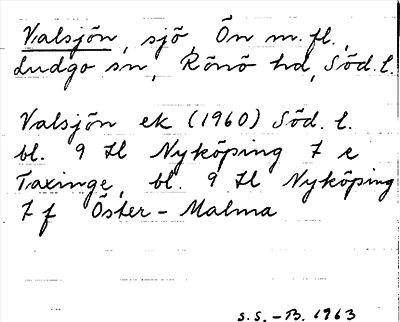 Valsjön, sjö, Ön m.fl.,
Ludgo sn, Rönö hd, Söd.l.
Valsjön ek (1960) Söd. l.
bl. 9 H Nyköping 7 e
Taxinge, bl. 9 H Nyköping
7 f Öster-Malma
S.S.-B. 1963